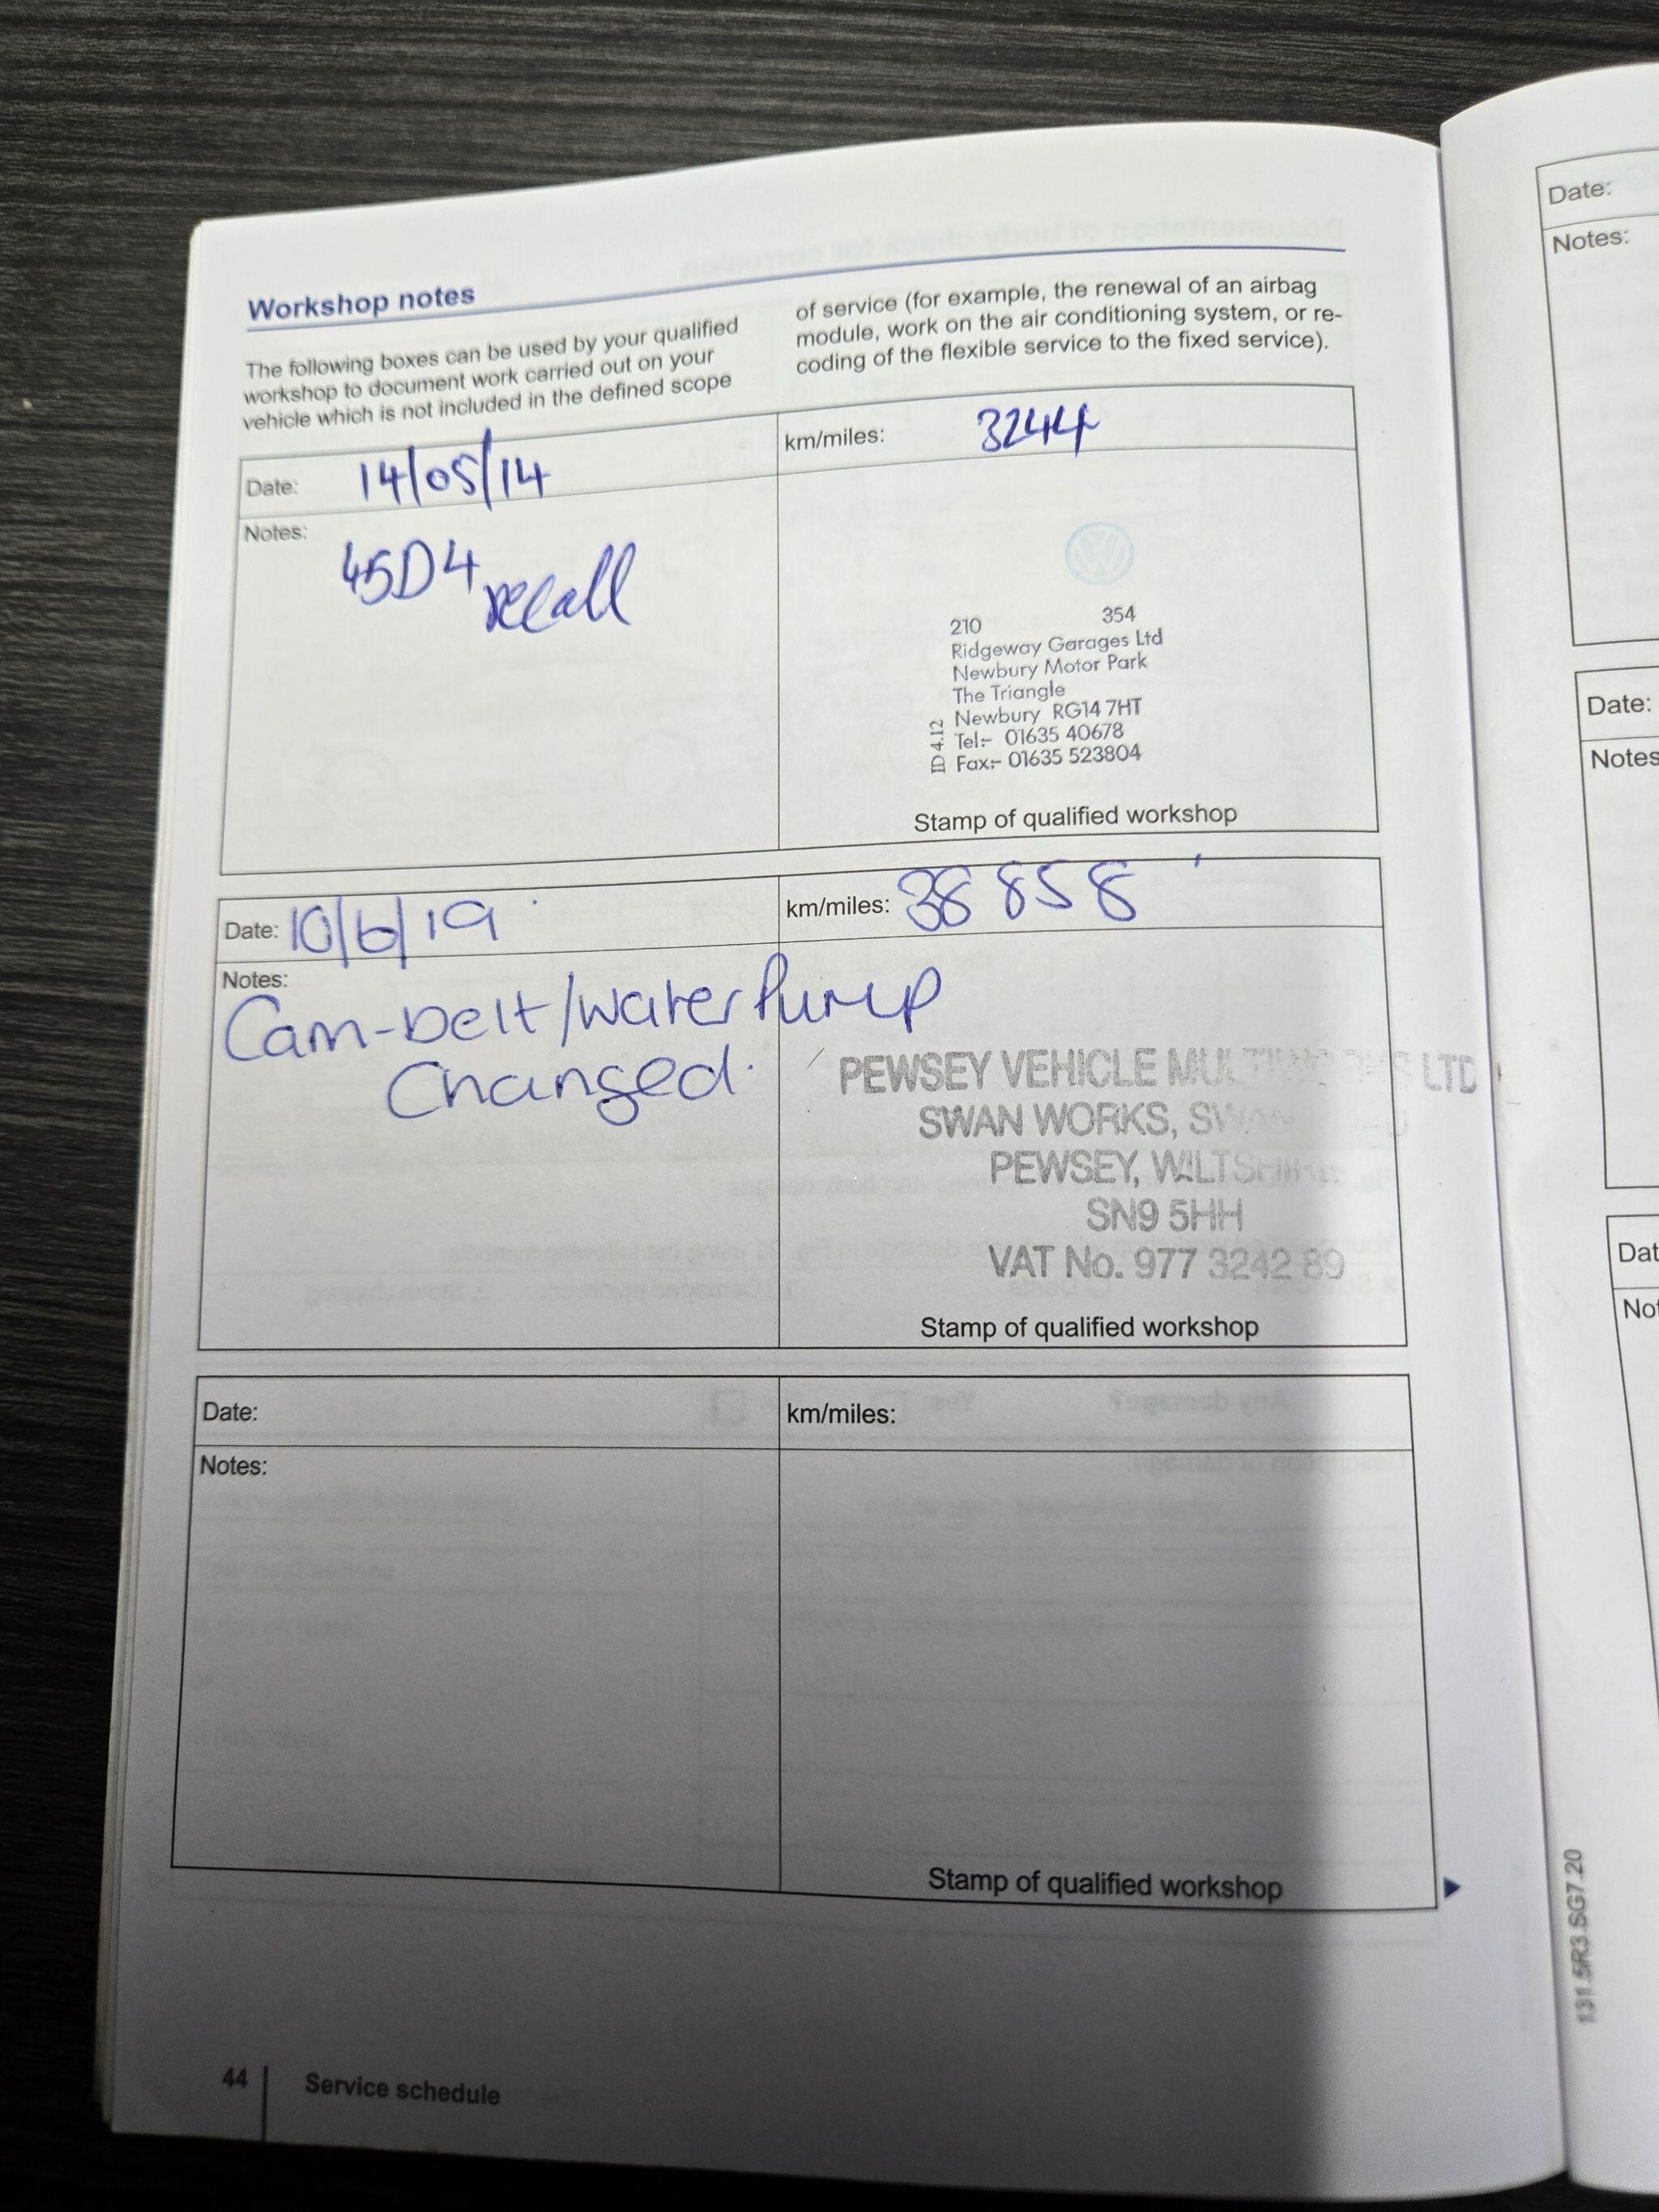 Workshop notes
The following boxes can be used by your qualified
workshop to document work carried out on your
vehicle which is not included in the defined scope
of service (for example, the renewal of an airbag
module, work on the air conditioning system, or re-
coding of the flexible service to the fixed service).
Date: 14/05/14
km/miles: 3244
Notes:
45D4 recall
210 354
Ridgeway Garages Ltd
Newbury Motor Park
The Triangle
Newbury RG14 7HT
Tel:- 01635 40678
Fax:- 01635 523804
ID 4.12
Stamp of qualified workshop
Date: 10/6/19
km/miles: 38858
Notes:
Cam-belt/water Pump
Changed.
PEWSEY VEHICLE MULTIWORKS LTD
SWAN WORKS, SWAN
PEWSEY, WILTSHIRE
SN9 5HH
VAT No. 977 3242 89
Stamp of qualified workshop
Date:
km/miles:
Notes:
Stamp of qualified workshop
44 Service schedule
Date:
Notes:
Date:
Notes
Dat
Not
131.5R3.SG7.20